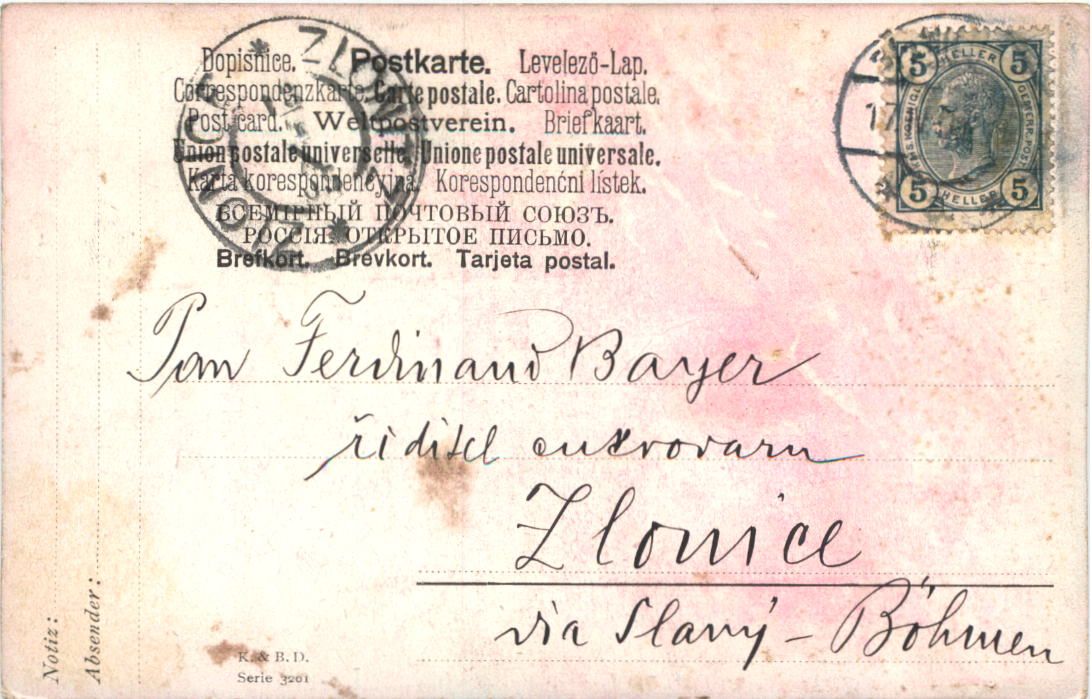 Dopisnice. Postkarte. Levelező-Lap.
Correspondenzkarte. Carte postale. Cartolina postale.
Post card. Weltpostverein. Briefkaart.
Union postale universelle. Unione postale universale.
Karta korespondencyjna. Korespondenční lístek.
ВСЕМІРНЫЙ ПОЧТОВЫЙ СОЮЗЪ.
РОССІЯ. ОТКРЫТОЕ ПИСЬМО.
Brefkort. Brevkort. Tarjeta postal.
5 HELLER 5
5 HELLER 5
ZLONITZ
ZLONICE
Pan Ferdinand Bayer
ředitel cukrovaru
Zlonice
via Slaný - Böhmen
Notiz:
Absender:
K. & B. D.
Serie 3201